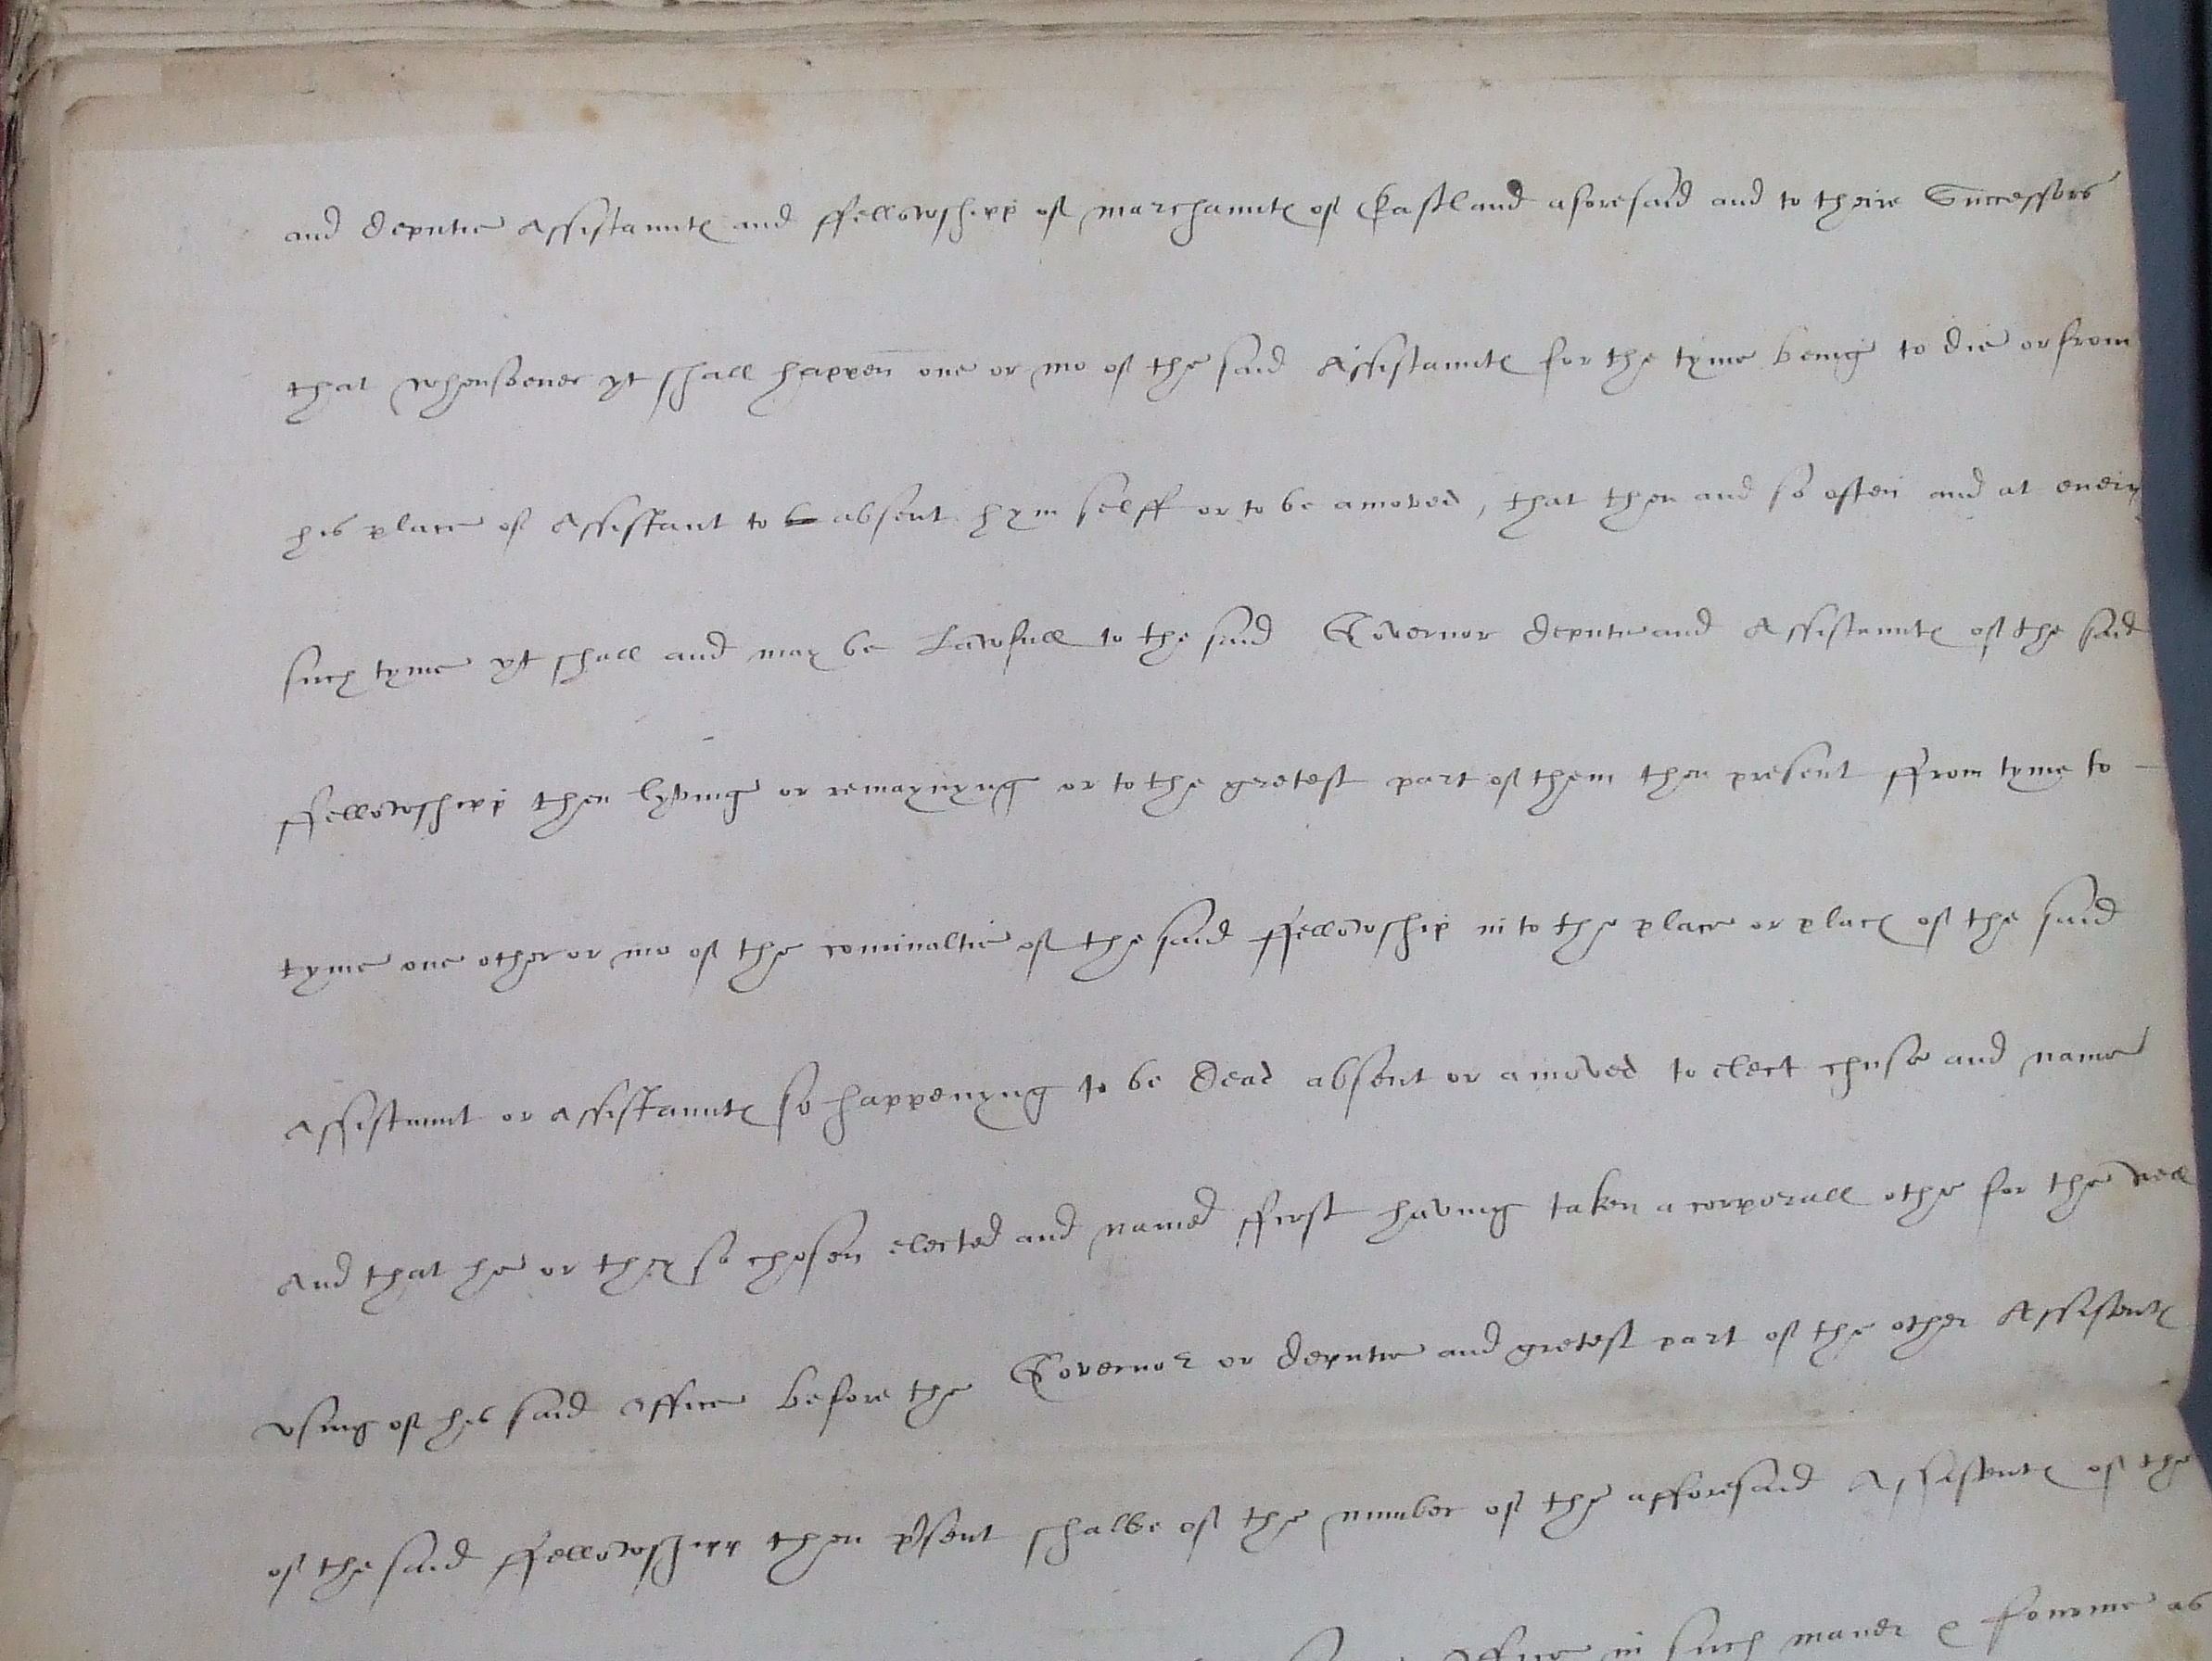 and deputie Assistauntes and ffellowshipp of marchauntes of Eastland aforesaid and to theire Successors
that whensoever yt shall happen one or mo of the said Assistauntes for the tyme being to die or from
his place of Assistant to absent hym selff or to be amoved, that then and so often and at every
such tyme yt shall and may be Lawfull to the said Governor deputie and Assistauntes of the said
ffellowshipp then lyving or remaynyng or to the gretest part of them then present ffrom tyme to
tyme one other or mo of the cominaltie of the said ffellowship in to the place or places of the said
Assistaunt or Assistauntes so happenyng to be dead absent or amoved to elect chuse and name
And that he or they so chosen elected and named ffirst having taken a corporall othe for the well
using of his said office before the Governor or deputie and gretest part of the other Assistentes
of the said ffellowshipp then p'sent shalbe of the number of the afforesaid Assistentes of the
office in such maner & fourme as